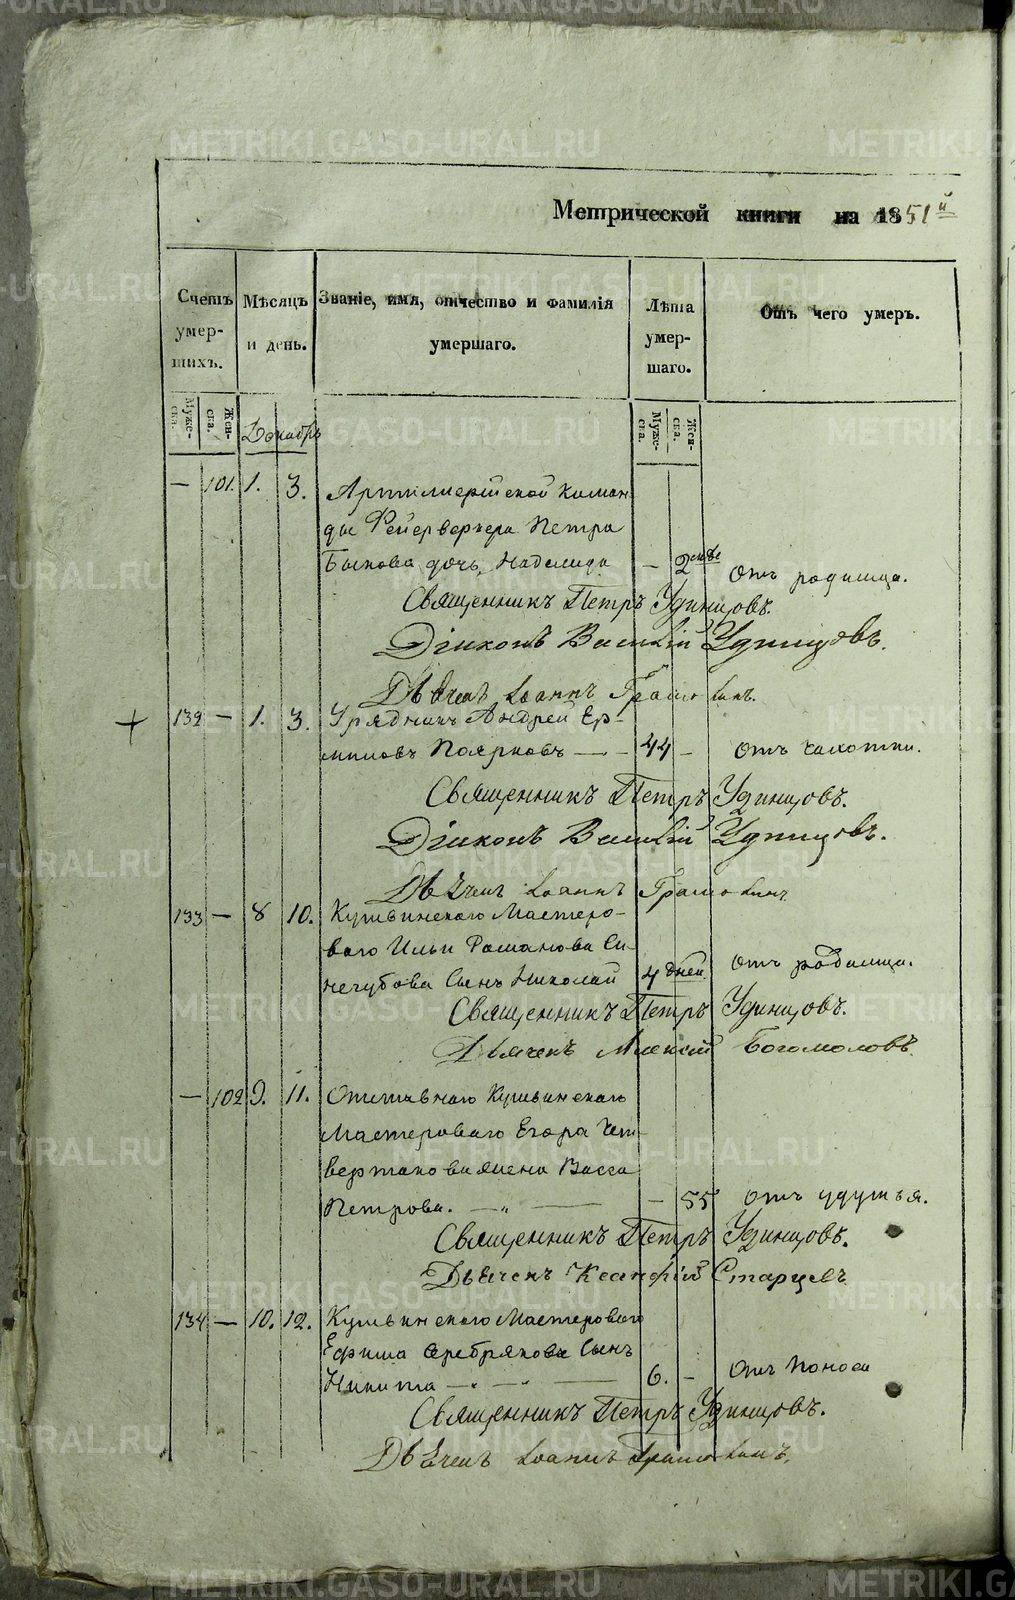 Метрической книги на 1851й
Счетъ умер-шихъ.
Мѣсяцъ и день.
Званіе, имя, отчество и фамилія умершаго.
Лѣта умер-шаго.
Отъ чего умеръ.
Муже-ска.
Жен-ска.
Декабрь
Муже-ска.
Жен-ска.
— 101. 1. 3. Артилерійской коман
ды Фейерверкера Петра
Быкова дочь, Надежда — 2 Отъ родимца.
Священникъ Петръ Удинцовъ.
Діаконъ Василій Удинцовъ.
Дьячекъ Іоаннъ
132 — 1. 3. Урядникъ Андрей Ер-
миловъ Поярковъ — 44 — Отъ чахотки.
Священникъ Петръ Удинцовъ.
Діаконъ Василій Удинцовъ.
Дьячекъ Іоаннъ
133 — 8 10. Кушвинскаго Мастеро-
ваго Ильи Романова Си
негубова сынъ Николай 4 дней Отъ родимца.
Священникъ Петръ Удинцовъ.
Дьячекъ Алексій Богомоловъ
— 102 9. 11. Отставнаго Кушвинскаго
Мастероваго Егора Чет-
вертакова жена Васса
Петрова. — — 55 Отъ удушья.
Священникъ Петръ Удинцовъ.
Дьячекъ Ксанфій Старцевъ
134 — 10. 12. Кушвинскаго Мастероваго
Ефима Серебрякова сынъ
Никита — 6. — Отъ поноса
Священникъ Петръ Удинцовъ.
Дьячекъ Іоаннъ
METRIKI.GASO-URAL.RU